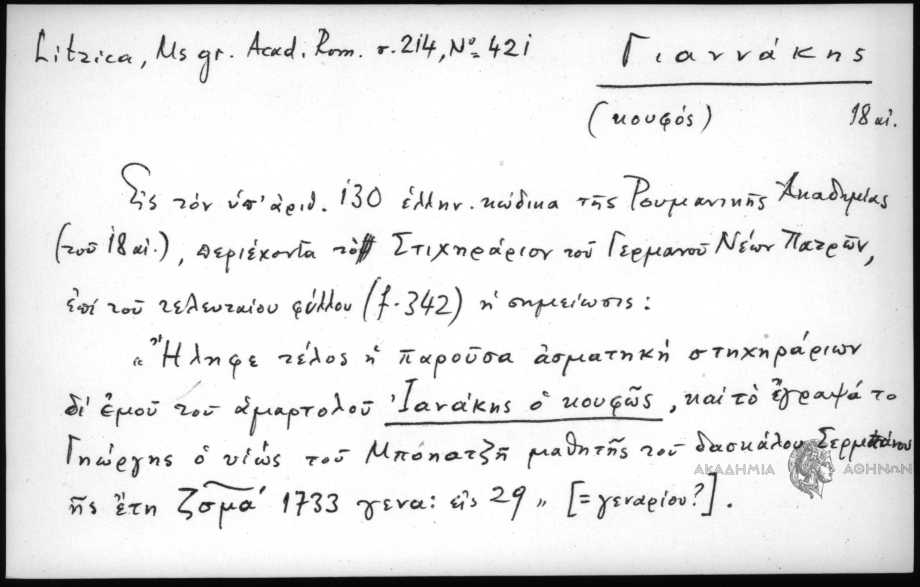 Litzica, Ms gr. Acad. Rom. σ. 214, Nº 421
Γιαννάκης
(κουφός) 18 αἰ.
Εἰς τὸν ὑπ' ἀριθ. 130 ἑλλην. κώδικα τῆς Ρουμανικῆς Ἀκαδημίας
(τοῦ 18 αἰ.), περιέχοντα τὸ Στιχηράριον τοῦ Γερμανοῦ Νέων Πατρῶν,
ἐπὶ τοῦ τελευταίου φύλλου (f. 342) ἡ σημείωσις:
« Ἤληφε τέλος ἡ παροῦσα ἀσματηκή στηχηράριων
δι' ἐμοῦ τοῦ ἁμαρτολοῦ Ἰανάκης ὁ κουφῶς, καὶ τὸ ἔγραψά το
Γηώργης ὁ υἱώς τοῦ Μπόηατζῆ μαθητῆς τοῦ δασκάλου
ῆς ἔτη ζσμα' 1733 γενα: εἰς 29 » [= γεναρίου?].
ΑΚΑΔΗΜΙΑ ΑΘΗΝΩΝ